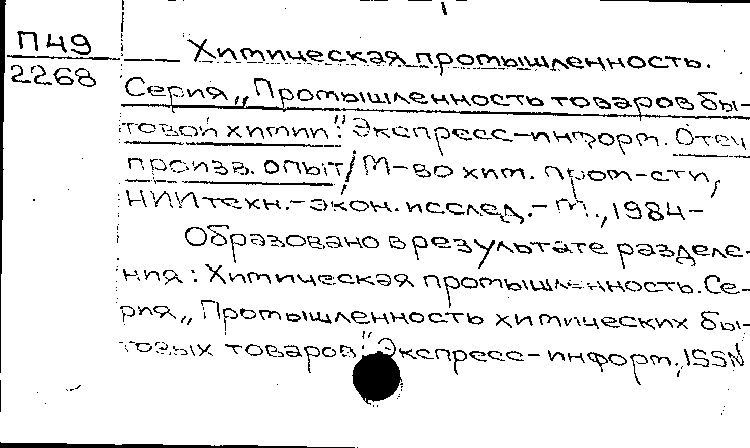 П49
2268
Химическая промышленность.
Серия „Промышленность товаров бы-
товой химии". Экспресс-информ. Отеч
произв. опыт/М-во хим. пром-сти,
НИИ техн.-экон. исслед. - М., 1984-
Образовано в результате разделе-
ния: Химическая промышленность. Се-
рия „Промышленность химических бы-
товых товаров". Экспресс-информ., ISSN